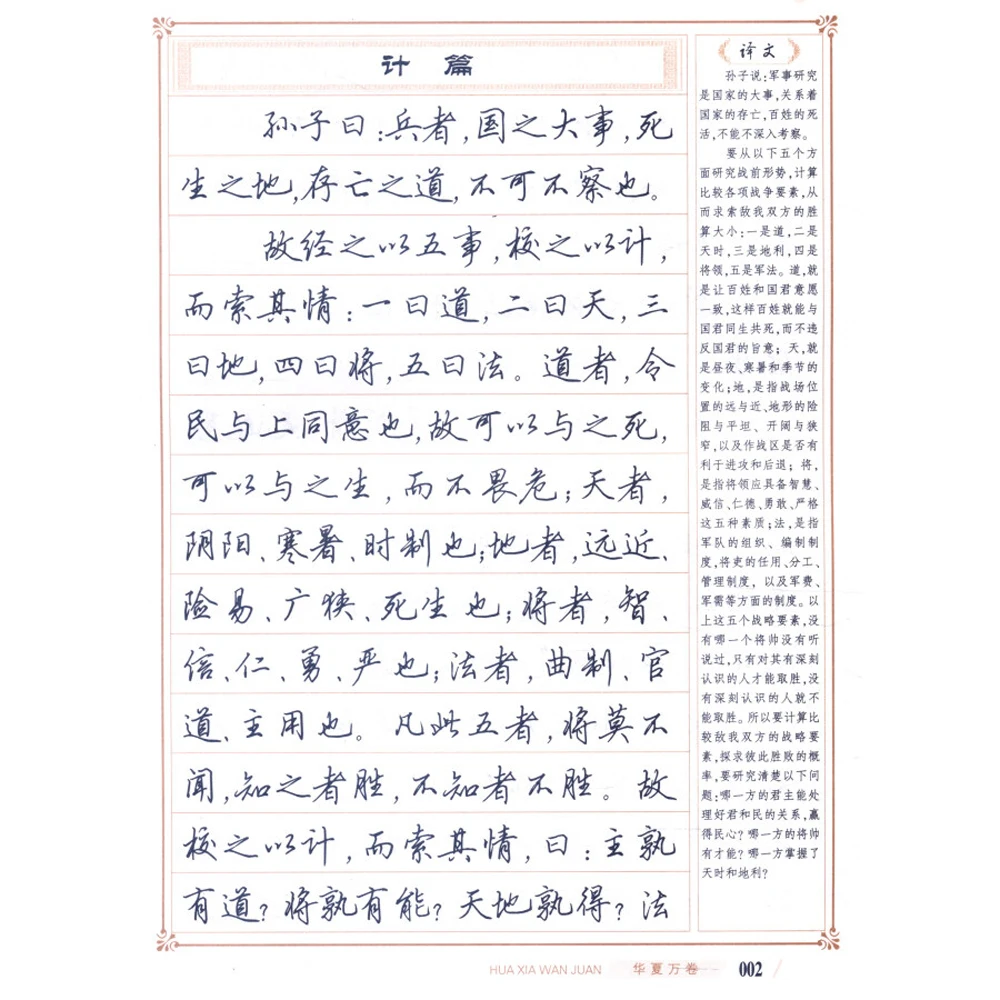 计篇
孙子曰:兵者,国之大事,死
生之地,存亡之道,不可不察也。
故经之以五事,校之以计,
而索其情:一曰道,二曰天,三
曰地,四曰将,五曰法。道者,令
民与上同意也,故可以与之死,
可以与之生,而不畏危;天者,
阴阳、寒暑、时制也;地者,远近、
险易、广狭、死生也;将者,智、
信、仁、勇、严也;法者,曲制、官
道、主用也。凡此五者,将莫不
闻,知之者胜,不知者不胜。故
校之以计,而索其情,曰:主孰
有道?将孰有能?天地孰得?法
译文
孙子说:军事研究
是国家的大事,关系着
国家的存亡,百姓的死
活,不能不深入考察。
要从以下五个方
面研究战前形势,计算
比较各项战争要素,从
而求索敌我双方的胜
算大小:一是道,二是
天时,三是地利,四是
将领,五是军法。道,就
是让百姓和国君意愿
一致,这样百姓就能与
国君同生共死,而不违
反国君的旨意;天,就
是昼夜、寒暑和季节的
变化;地,是指战场位
置的远与近、地形的险
阻与平坦、开阔与狭
窄,以及作战区是否有
利于进攻和后退;将,
是指将领应具备智慧、
威信、仁德、勇敢、严格
这五种素质;法,是指
军队的组织、编制制
度,将吏的任用、分工、
管理制度,以及军费、
军需等方面的制度。以
上这五个战略要素,没
有哪一个将帅没有听
说过,只有对其有深刻
认识的人才能取胜,没
有深刻认识的人就不
能取胜。所以要计算比
较敌我双方的战略要
素,探求彼此胜败的概
率,要研究清楚以下问
题:哪一方的君主能处
理好君和民的关系,赢
得民心?哪一方的将帅
有才能?哪一方掌握了
天时和地利?
HUA XIA WAN JUAN 华夏万卷 002